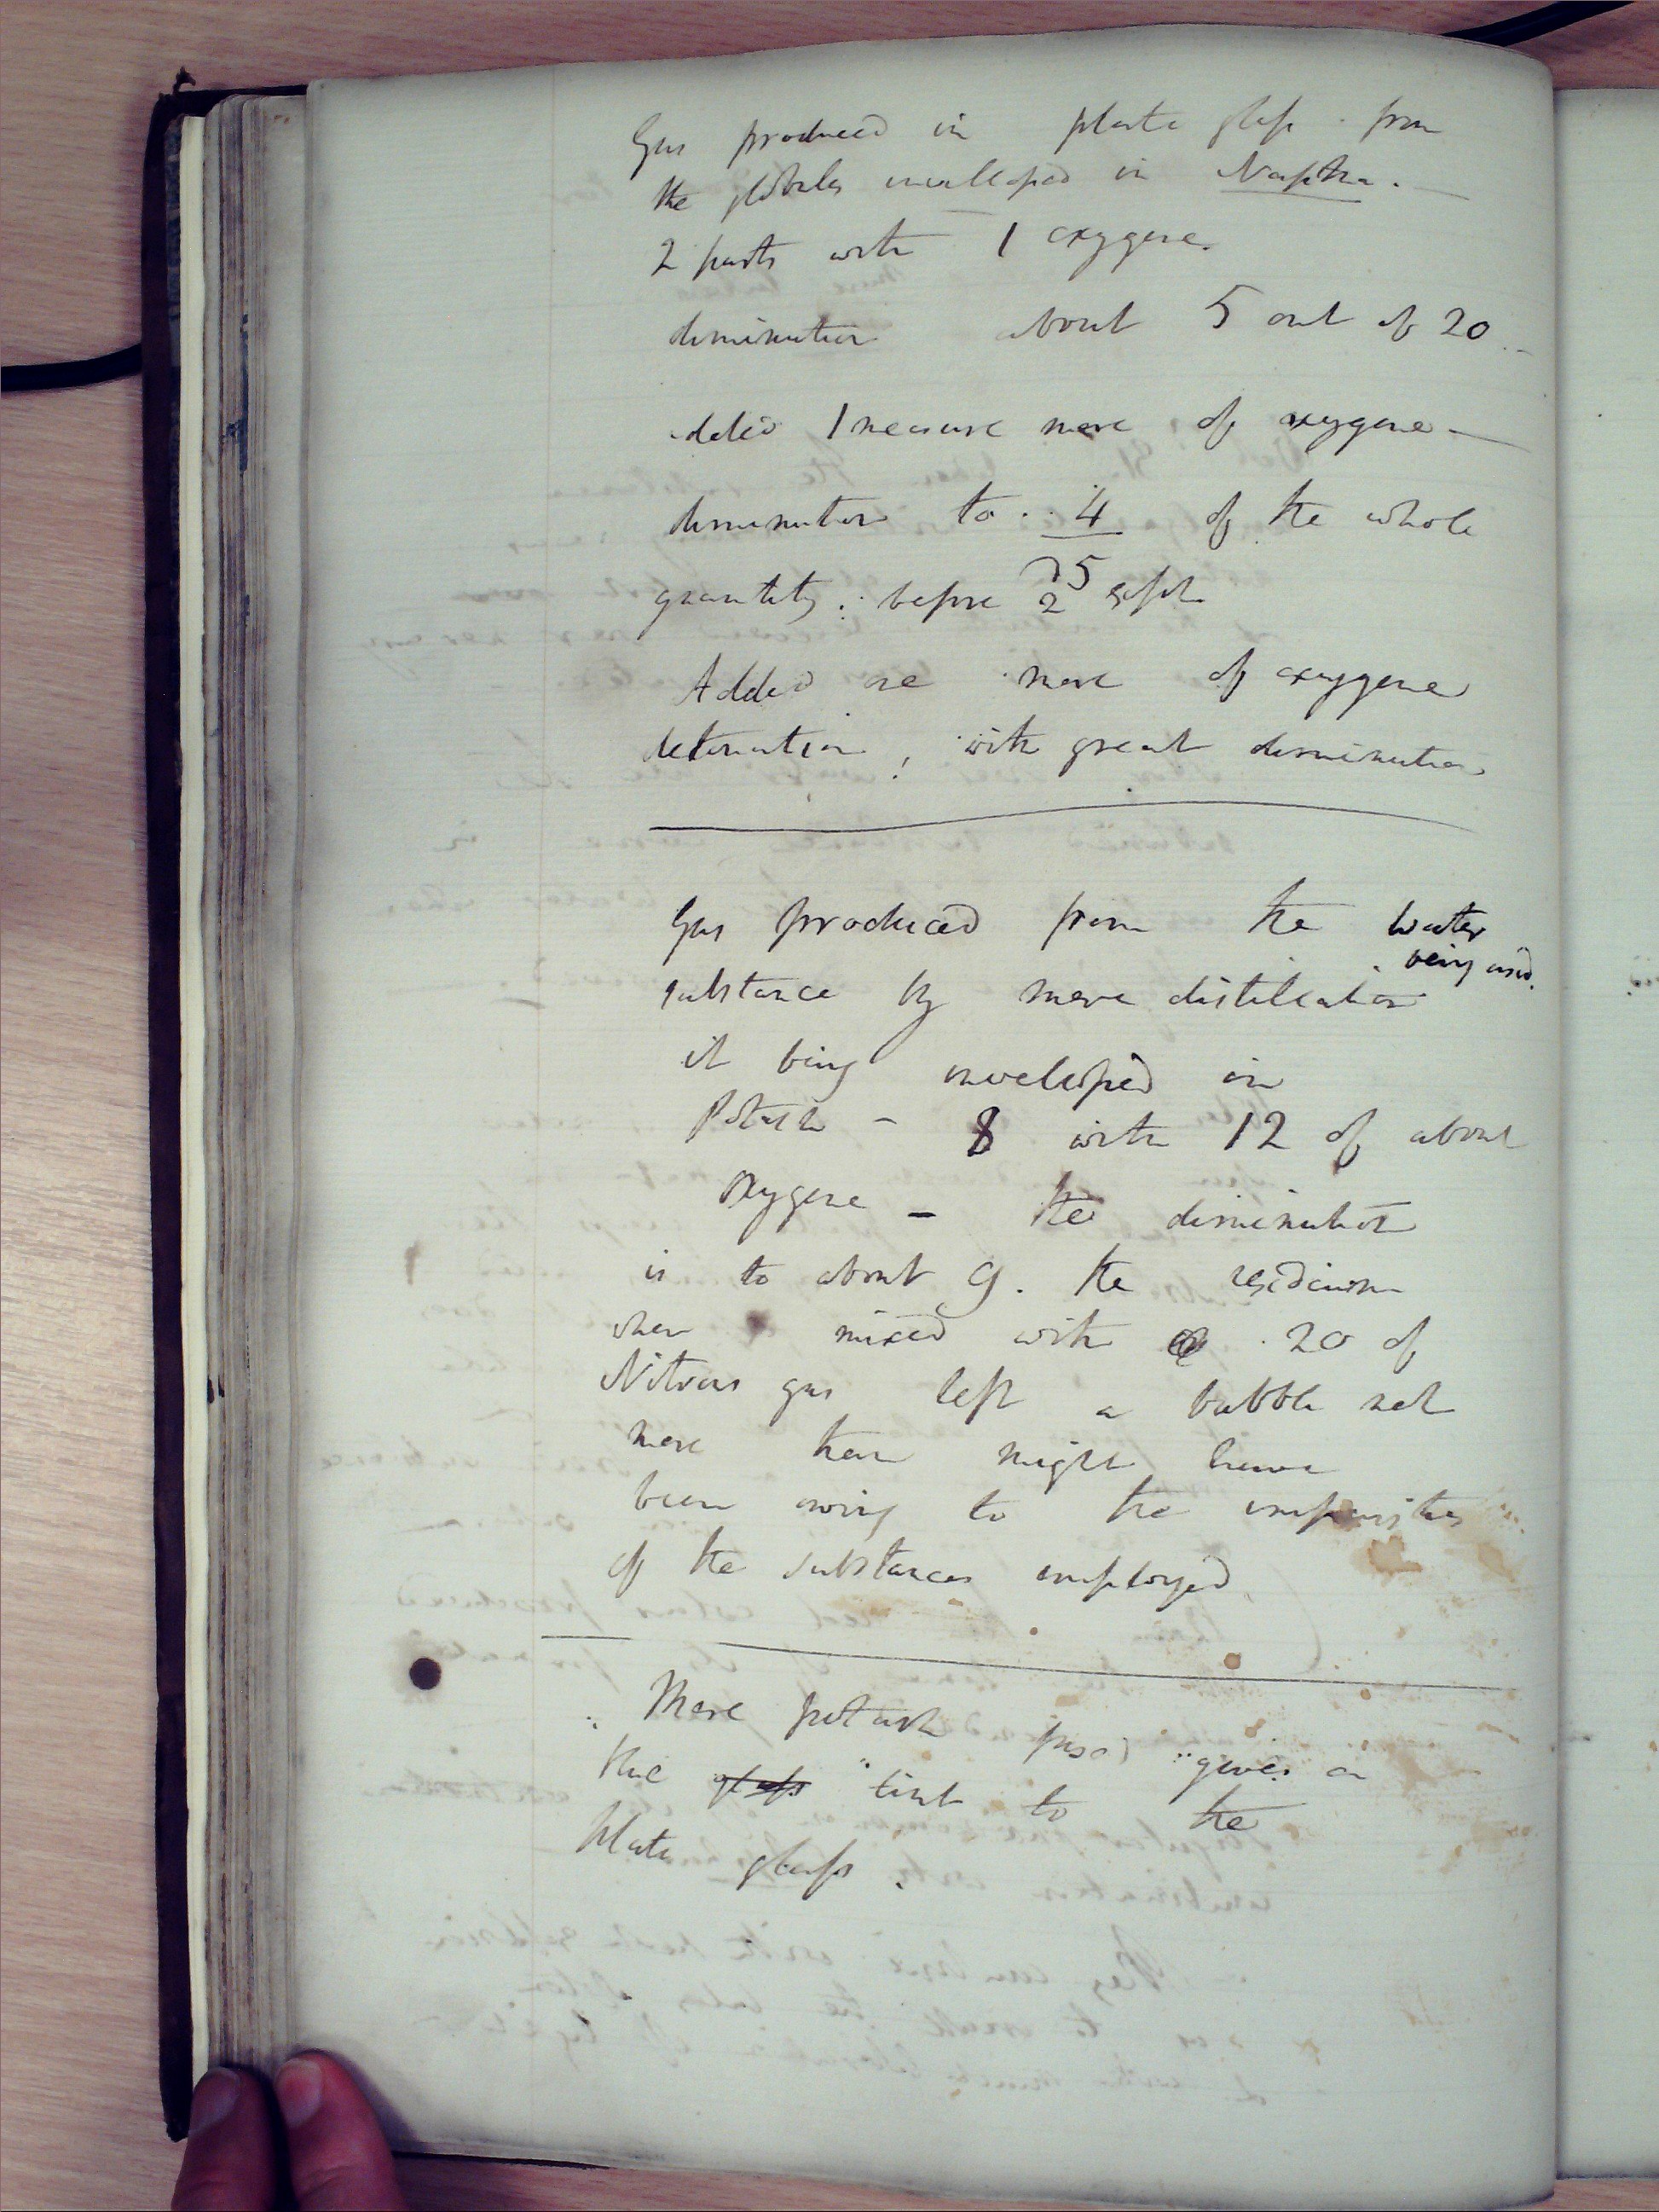 Gas produced in plate glass from
the globules envelloped in Naptha.
2 parts with 1 oxygene.
diminution about 5 out of 20
added 1 measure more of oxygene —
diminution to 4 of the whole
quantity. before 25
2
Added one more of oxygene
detonation, with great diminution
Gas produced from the water
being used.
substance by mere distillation
it being envelloped in
Potash – 8 with 12 of about
oxygene – the diminution
is to about 9. the residuum
when mixed with 20 of
Nitrous gas left a bubble not
more than might have
been owing to the impurities
of the substances employed
Mere potash fused gives a
blue glass tint to the
Plate glass.